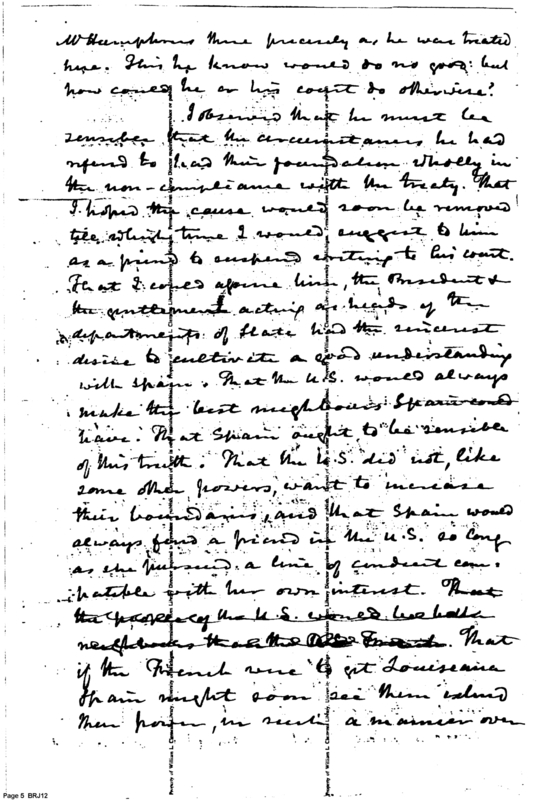 Mr Humphries there precisely as he was treated
here. This he knew would do no good: but
how could he or his court do otherwise?
I observed that he must be
sensible that the circumstances he had
referred to had their foundation wholly in
the non-compliance with the treaty. That
I hoped the cause would soon be removed
till which time I would suggest to him
as a friend to suspend writing to his court.
That I could assure him, the President &
the gentlemen acting as heads of the
departments of State had the sincerest
desire to cultivate a good understanding
with Spain. That the U.S. would always
make the best neighbours Spain could
have. That Spain ought to be sensible
of this truth. That the U.S. did not, like
some other powers, want to increase
their boundaries, and that Spain would
always find a friend in the U.S. so long
as she pursued a line of conduct com-
patible with her own interest. That
the people of the U.S. would be better
neighbours than the French. That
if the French were to get Louisiana
Spain might soon see them extend
their power, in such a manner over
Property of William L.
Property of William L.
Page 5 BRJ12